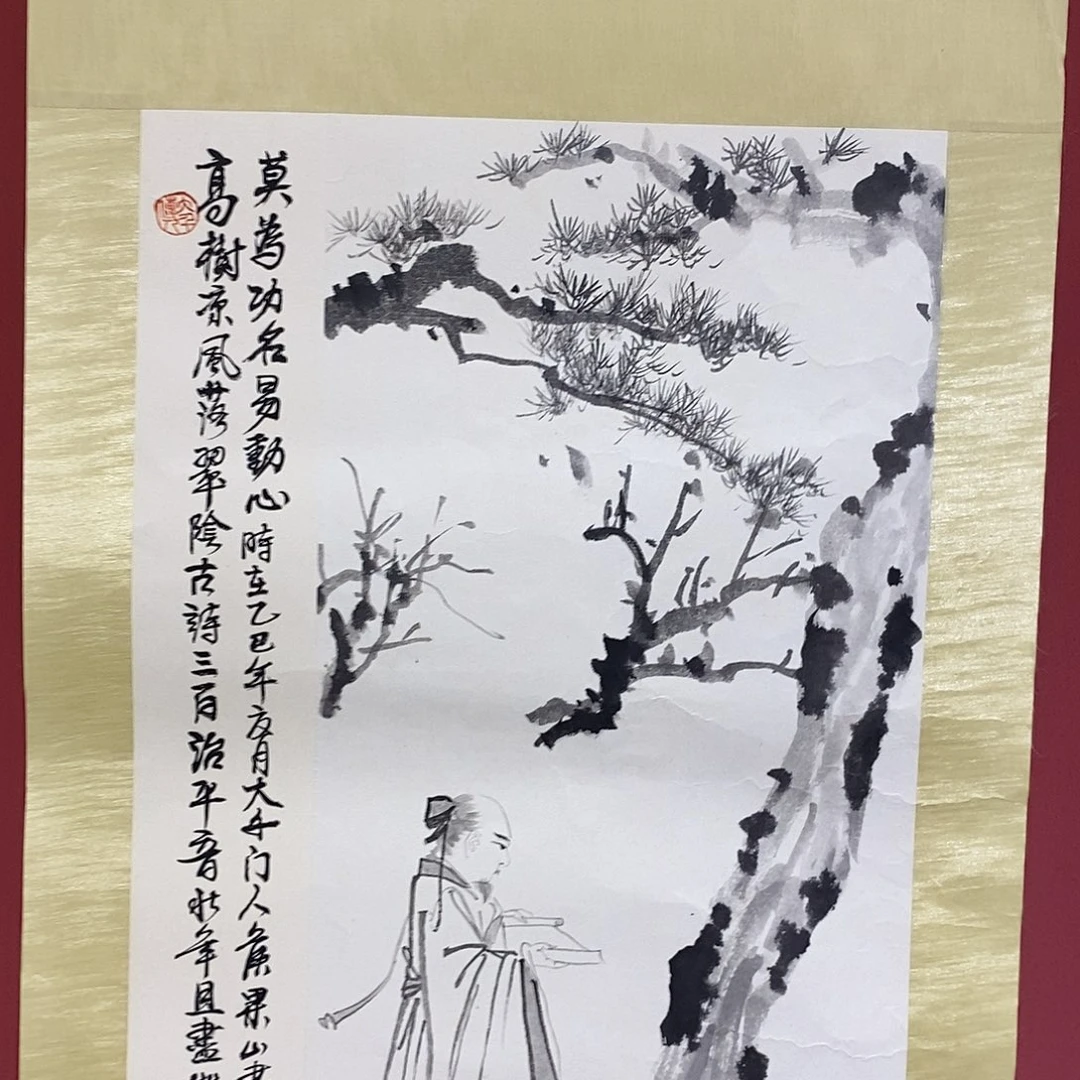 高樹凉風落翠陰古詩三百治平音壮年且盡
莫為功名易動心時在乙巳年月大千门人山